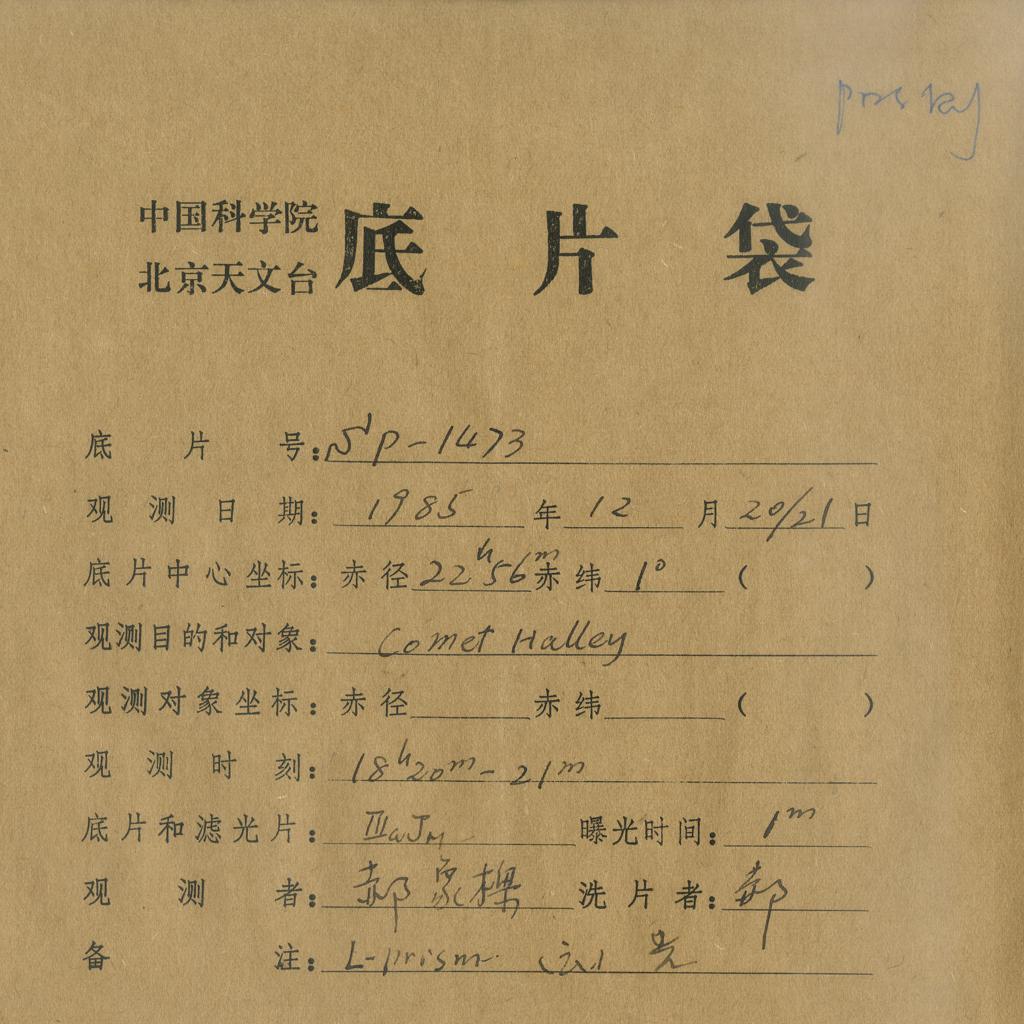 中国科学院
北京天文台
底片袋
底片号：Sp-1473
观测日期：1985年12月20/21日
底片中心坐标：赤径22h56m赤纬1°（ ）
观测目的和对象：Comet Halley
观测对象坐标：赤径 赤纬 （ ）
观测时刻：18h20m-21m
底片和滤光片：ⅢaJM 曝光时间：1m
观测者：郝象樑 洗片者：郝
备注：L-prism